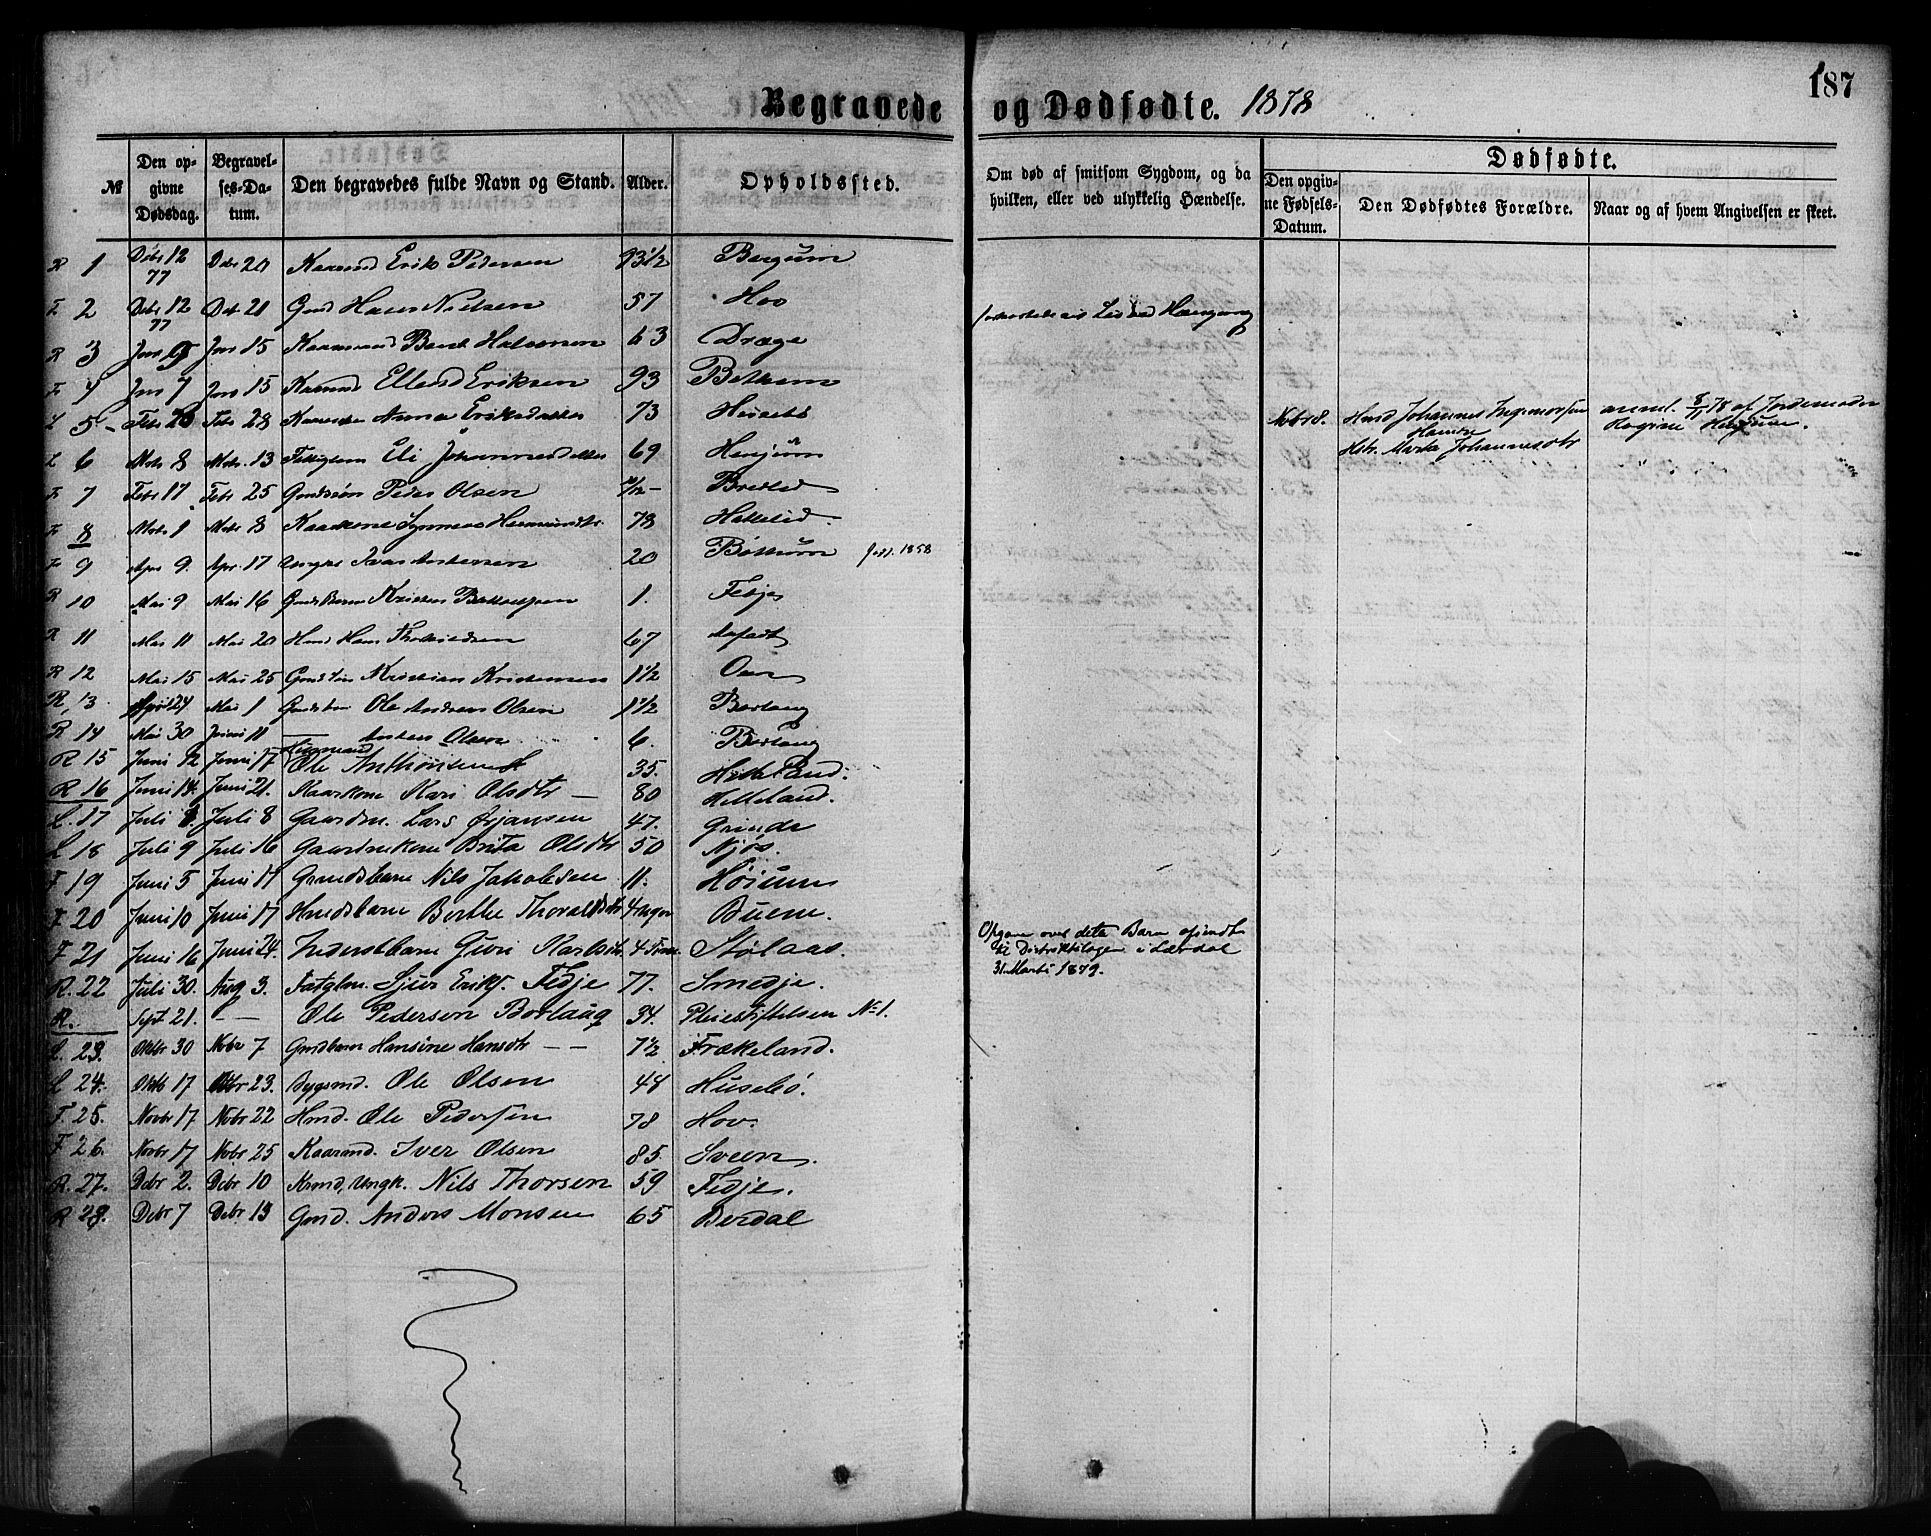 187
Begravede og Dødfødte. 1878
№ Den opgivne Dødsdag. Begravelses-Datum. Den begravedes fulde Navn og Stand. Alder. Opholdssted. Om død af smitsom Sygdom, og da hvilken, eller ved ulykkelig Hændelse. Dødfødte. Den opgivne Fødsels-Datum. Den Dødfødtes Forældre. Naar og af hvem Angivelsen er skeet.
R 1 Debr 12 77 Debr 20 Kaarmd Erik Pedersen 93 1/2 Bergum
F 2 Debr 12 77 Debr 21 Gmd Hans Nielsen 57 Hov
R 3 Jan 15 63 Dræge
F 4 Jan 7 Jan 15 Kaarmd Ellend Eriksen 93
L 5 Febr 20 Febr 28 Anna Eriksdatter 73 Nobr 8. Hmd Johannes Ingemorsen Hamre Hstr. Marta Johannesdtr anmel. 8/11 78 af Jordemoder
L 6 Mars 8 Mars 13 Eli Johannesdatter 69 Henjum
F 7 Febr 17 Febr 25 Gmdssøn Peder Olsen
F 8 Mars 1 Mars 8 Kaarkone 78
F 9 Apr 9. Apr. 17 Ungkr 20 Bøthum født. 1858
R 10 Mai 9 Mai 16 Gmdsbarn Kristen 1. Fedje
R 11 Mai 11 Mai 20 Hmd Hans 67
R 12 Mai 15 Mai 25 Gmds søn Kristian Kristensen 1 1/2
R, 13 April 24 Mai 1 Gmdsbarn Ole Andreas Olsen 1 1/2 Borlaug
R 14 Mai 30 Juni 11 — Anders Olsen 6. Borlaug
R 15 Juni 12 Juni 17 Husmand Ole Anthonsen 35.
R 16 Juni 14. Juni 21. Kaarkone Kari Olsdtr — 80 Helleland.
L. 17 Juli 1. Juli 8 Gaardm. Lars Ørjansen 47. Grinde
L 18 Juli 9 Juli 16 Gaardmkone Brita Olsdtr 50 Njøs.
F 19 Juni 5 Juni 17 Gmdsbarn Nils Jakobsen 11. Høium
F 20 Juni 10 Juni 17 Hmdsbarn Berthe Thoraldsdtr 4 Uger Buene.
F 21 Juni 16 Juni 24. Inderstbarn Guri Karlsdtr. 4 Timer. Stølaas. Opgave over dette Barn afsendt til Distriktslægen i Lærdal 31 Marts 1879.
R. 22 Juli 30. Aug 3. Fatglm. Sjur Eriks. Fedje 77. Smedje.
R. Sept 21. — — Ole Pederson Borlaug 34. Pleiestiftelsen No 1.
L. 23. Oktbr 30 Nobr 7 Gmdbarn Hansine Hansdtr — — 7 1/2 Frækeland.
L 24. Oktb 17 Oktbr 23. Bygsmd. Ole Olsen 48 Husebø.
F. 25. Novbr 17 Nobr 22 Hmd. Ole Pedersen 78 Hov.
F 26. Novbr 17 Nobr 25 Kaarmd. Iver Olsen 85. Sveen.
R. 27. Debr 2. Debr 10 Kmd, Ungk. Nils Thorsen 59 Fedje.
R 28. Debr 7 Debr 13 Gmd. Anders Monsen 65 Berdal